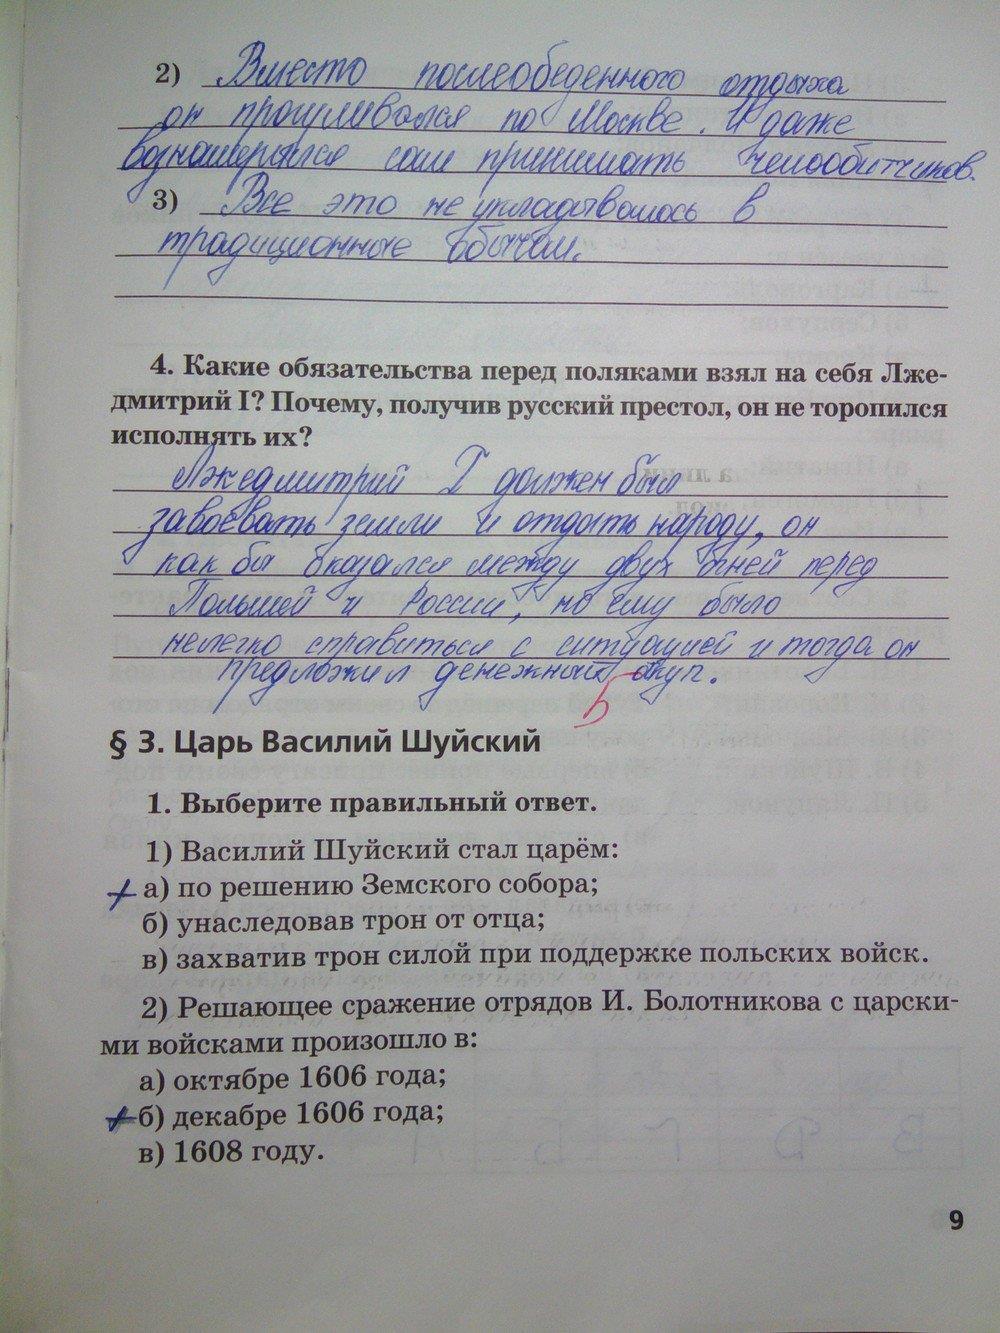 2) Вместо послеобеденного отдыха
он прогуливался по Москве. И даже
вознамерился сам принимать челообитчиков.
3) Все это не укладывалось в
традиционные обычаи.
4. Какие обязательства перед поляками взял на себя Лже-
дмитрий I? Почему, получив русский престол, он не торопился
исполнять их?
Лжедмитрий I должен был
завоевать земли и отдать народу, он
как бы оказался между двух огней перед
Польшей и России, но ему было
нелегко справиться с ситуацией и тогда он
предложил денежный откуп.
5
§ 3. Царь Василий Шуйский
1. Выберите правильный ответ.
1) Василий Шуйский стал царём:
+ а) по решению Земского собора;
б) унаследовав трон от отца;
в) захватив трон силой при поддержке польских войск.
2) Решающее сражение отрядов И. Болотникова с царски-
ми войсками произошло в:
а) октябре 1606 года;
+ б) декабре 1606 года;
в) 1608 году.
9